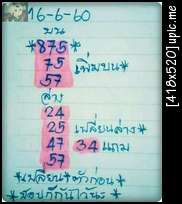 16-6-60
บน
*875*
75 เพิ่มบน*
57
ล่าง
24
25 เปลี่ยนล่าง
47 34 แถม
57
*เปลี่ยนตัวก่อน*
[418x520]upic.me